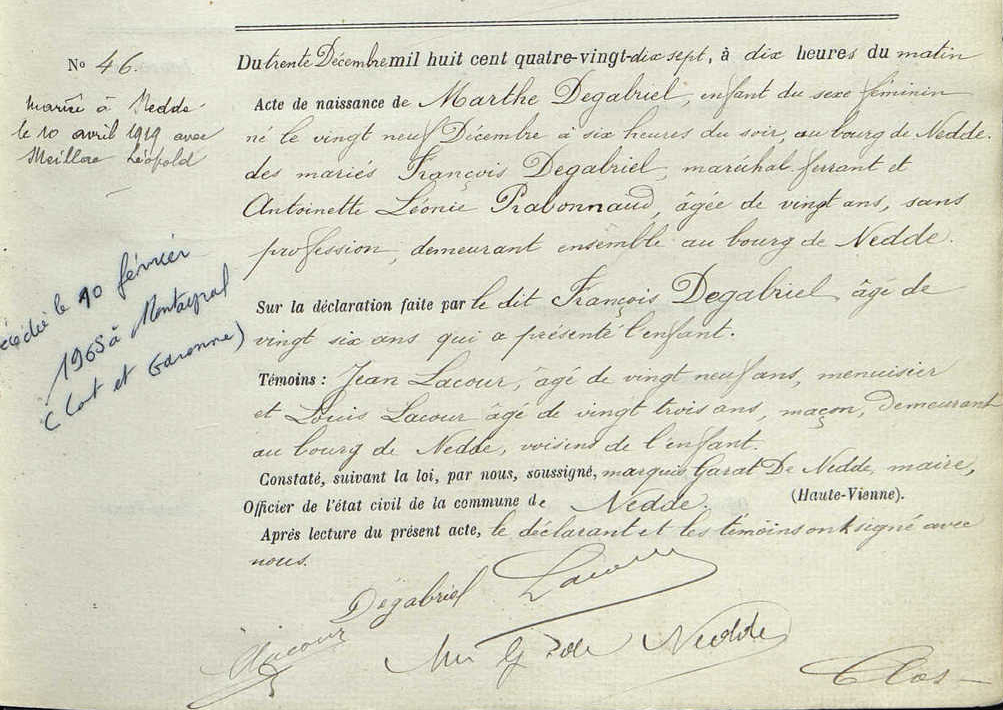 No 46.
Mariée à Nedde
le 10 avril 1919 avec
Meillac Léopold
décédée le 10 février
1965 à Montayral
(Lot et Garonne)
Du trente Décembre mil huit cent quatre-vingt-dix sept, à dix heures du matin
Acte de naissance de Marthe Degabriel, enfant du sexe féminin
né le vingt neuf Décembre à six heures du soir, au bourg de Nedde.
des mariés François Degabriel, maréchal ferrant et
Antoinette Léonie Prabonnaud, âgée de vingt ans, sans
profession, demeurant ensemble au bourg de Nedde.
Sur la déclaration faite par le dit François Degabriel âgé de
vingt six ans qui a présenté l'enfant.
Témoins : Jean Lacour, âgé de vingt neuf ans, menuisier
et Louis Lacour âgé de vingt trois ans, maçon, demeurant
au bourg de Nedde, voisins de l'enfant.
Constaté, suivant la loi, par nous, soussigné, marquis Garat De Nedde, maire,
Officier de l'état civil de la commune de Nedde. (Haute-Vienne).
Après lecture du présent acte, le déclarant et les témoins ont signé avec
nous.
Degabriel Lacour
Lacour de Nedde
Clos